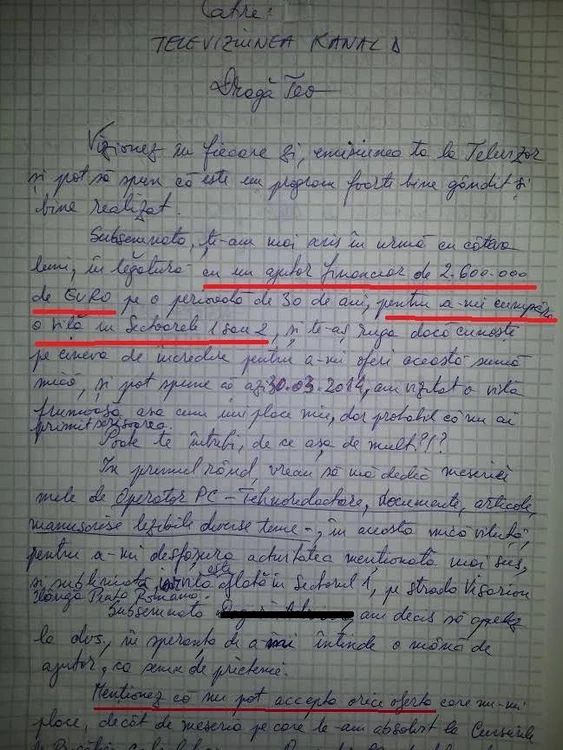 Catre:
TELEVIZIUNEA KANAL D
Dragă Teo
Vizionez în fiecare zi, emisiunea ta la Televizor
și pot să spun că este un program foarte bine gândit și
bine realizat.
Subsemnata, ti-am mai scris în urmă cu câteva
luni, în legătură cu un ajutor financiar de 2.600.000
de EURO pe o perioadă de 30 de ani, pentru a-mi cumpăra
o vilă în Sectoarele 1 sau 2, și te-aș ruga dacă cunoști
pe cineva de încredere pentru a-mi oferi această sumă
mică, și pot spune că azi 30.03.2014, am vizitat o vilă
frumoasă așa cum îmi place mie, dar probabil că nu ai
primit scrisoarea.
Poate te întrebi, de ce așa de mult?!?
In primul rând, vreau să mă dedic meseriei
mele de Operator PC - Tehnoredactare, documente, articole,
manuscrise legibile diverse teme -, în aceasta mică viluță,
pentru a-mi desfășura activitatea menționată mai sus,
și sublimata este aflată în Sectorul 1, pe strada Visarion
lângă Piața Romană.
Subsemnata am decis să apelez
la dvs, în speranța de a-mi întinde o mână de
ajutor, ca semn de prietenie.
Menționez că nu pot accepta orice ofertă care nu-mi
place, decât de meseria pe care le-am absolvit la Cursurile